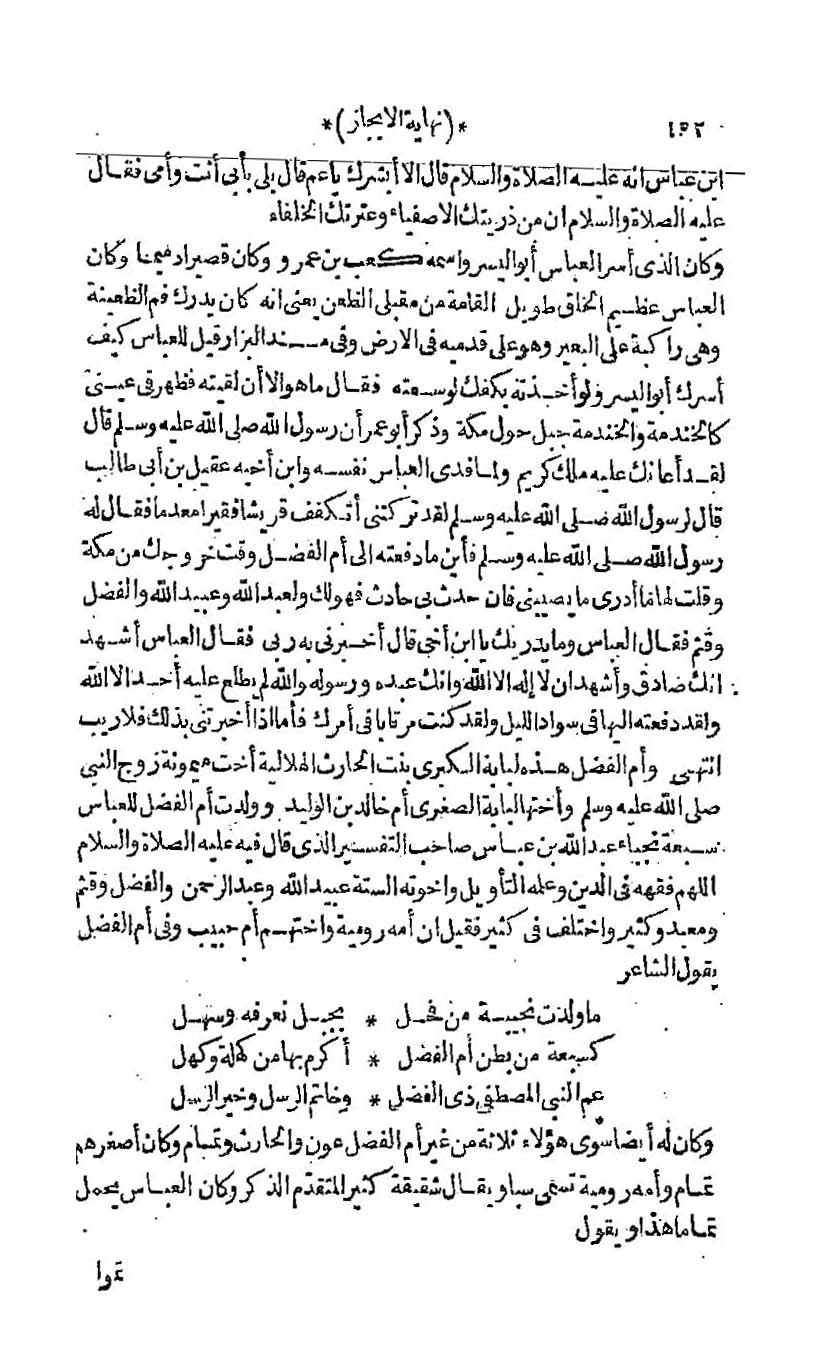 ١٥٢
*(نهاية الايجاز)*
ابن عباس انه عليه الصلاة والسلام قال الا أبشرك ياعم قال بلى بأبى أنت وأمى فقال
عليه الصلاة والسلام ان من ذريتك الاصفياء وعترتك الخلفاء
وكان الذى أسر العباس أبو اليسر واسمه كعب بن عمرو وكان قصيرا دميما وكان
العباس عظيم الخلق طويل القامة من مقبلى الظعن يعنى انه كان يدرك فم الظعينة
وهى راكبة على البعير وهو على قدميه فى الارض وفى مسند البزار قيل للعباس كيف
أسرك أبو اليسر ولو أخذته بكفك لوسعته فقال ما هو الا أن لقيته فظهر فى عينى
كالخندمة والخندمة جبل حول مكة وذكر أبو عمر أن رسول الله صلى الله عليه وسلم قال
لقد أعانك عليه ملك كريم ولما فدى العباس نفسه وابن أخيه عقيل بن أبى طالب
قال لرسول الله صلى الله عليه وسلم لقد تركتنى أتكفف قريشا فقيرا معدما فقال له
رسول الله صلى الله عليه وسلم فأين ما دفعته الى أم الفضل وقت خروجك من مكة
وقلت لها ما أدرى ما يصيبنى فان حدث بى حادث فهو لك ولعبد الله وعبيد الله والفضل
وقثم فقال العباس وما يدريك يا ابن أخى قال أخبرنى به ربى فقال العباس أشهد
انك صادق وأشهد ان لا إله الا الله وانك عبده ورسوله والله لم يطلع عليه أحد الا الله
ولقد دفعته اليها فى سواد الليل ولقد كنت مرتابا فى أمرك فأما اذا أخبرتنى بذلك فلا ريب
انتهى وأم الفضل هذه لبابة الكبرى بنت الحارث الهلالية أخت ميمونة زوج النبى
صلى الله عليه وسلم وأختها لبابة الصغرى أم خالد بن الوليد وولدت أم الفضل للعباس
سبعة نجباء عبد الله بن عباس صاحب التفسير الذى قال فيه عليه الصلاة والسلام
اللهم فقهه فى الدين وعلمه التأويل واخوته الستة عبيد الله وعبد الرحمن والفضل وقثم
ومعبد وكثير واختلف فى كثير فقيل ان أمه رومية واختهم أم حبيب وفى أم الفضل
يقول الشاعر
ما ولدت نجيبة من فحل * بجبل نعرفه وسهل
كسبعة من بطن أم الفضل * أكرم بها من كهلة وكهل
عم النبى المصطفى ذى الفضل * وخاتم الرسل وخير الرسل
وكان له أيضا سوى هؤلاء ثلاثة من غير أم الفضل عون والحارث وتمام وكان أصغرهم
تمام وأمه رومية تسمى سبا ويقال شقيقة كثير المتقدّم الذكر وكان العباس يحمل
تماما هذا ويقول
تموا